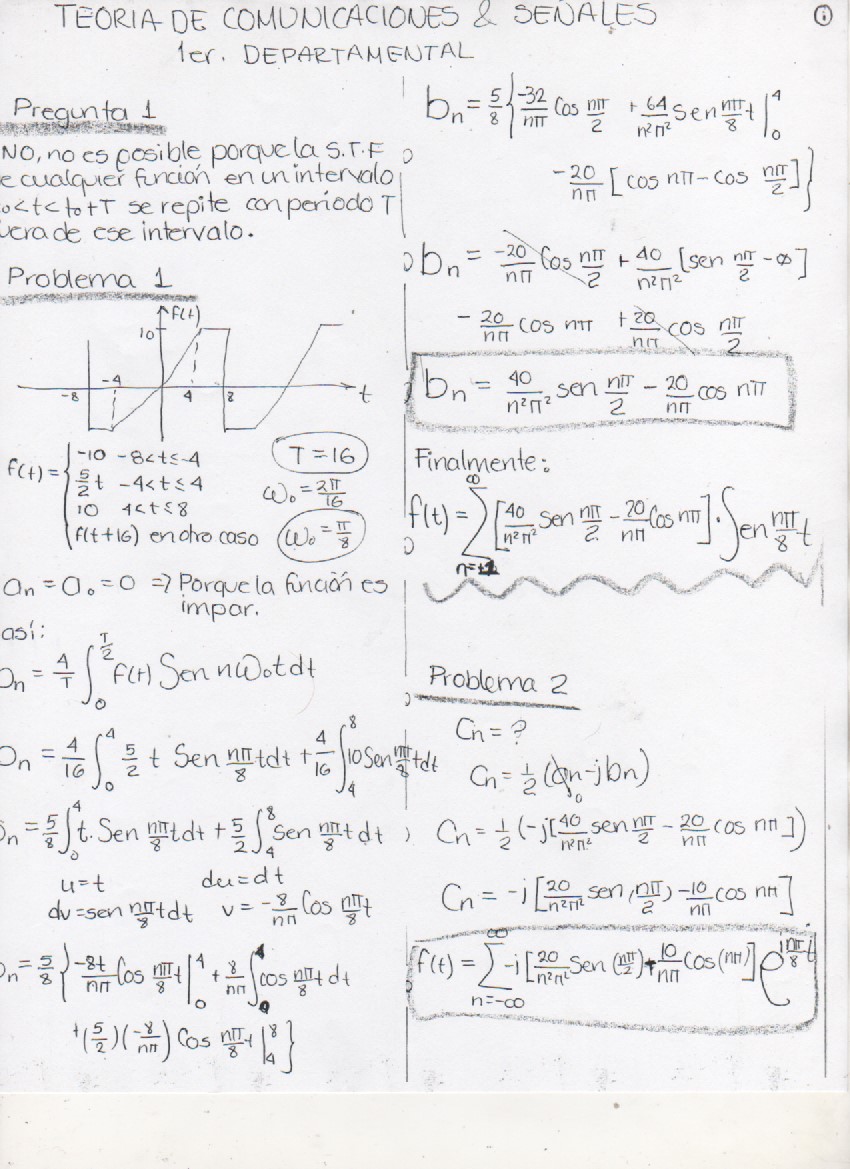 TEORIA DE COMUNICACIONES & SEÑALES
1
1er. DEPARTAMENTAL
Pregunta 1
NO, no es posible porque la S.T.F
e cualquier función en un intervalo
o<t<to+T se repite con periodo T
uera de ese intervalo.
Problema 1
f(t)
10
-8 -4 4 8 t
f(t) = { -10 -8<t≤-4
5/2 t -4<t≤4
10 4<t≤8
f(t+16) en otro caso
T = 16
ω₀ = 2π/16
ω₀ = π/8
an = a₀ = 0 => Porque la función es
impar.
así:
bn = 4/T ∫₀^(T/2) f(t) Sen nω₀t dt
bn = 4/16 ∫₀⁴ 5/2 t Sen nπ/8 t dt + 4/16 ∫₄⁸ 10 Sen nπ/8 t dt
bn = 5/8 ∫₀⁴ t. Sen nπ/8 t dt + 5/2 ∫₄⁸ Sen nπ/8 t dt
u = t du = dt
dv = sen nπ/8 t dt v = -8/nπ Cos nπ/8 t
bn = 5/8 { -8t/nπ Cos nπ/8 t |₀⁴ + 8/nπ ∫₀⁴ cos nπ/8 t dt
+ (5/2)(-8/nπ) Cos nπ/8 t |₄⁸ }
bn = 5/8 { -32/nπ Cos nπ/2 + 64/n²π² Sen nπ/8 t |₀⁴
-20/nπ [cos nπ - cos nπ/2] }
bn = -20/nπ Cos nπ/2 + 40/n²π² [sen nπ/2 - 0]
- 20/nπ cos nπ + 20/nπ cos nπ/2
bn = 40/n²π² sen nπ/2 - 20/nπ cos nπ
Finalmente:
f(t) = Σ_(n=1)^∞ [40/n²π² Sen nπ/2 - 20/nπ Cos nπ] · Sen nπ/8 t
Problema 2
Cn = ?
Cn = 1/2 (an - jbn)
0
Cn = 1/2 (-j[40/n²π² sen nπ/2 - 20/nπ cos nπ])
Cn = -j [20/n²π² sen (nπ/2) - 10/nπ cos nπ]
f(t) = Σ_(n=-∞)^∞ -j [20/n²π² Sen (nπ/2) + 10/nπ Cos(nπ)] e^(j nπ/8 t)